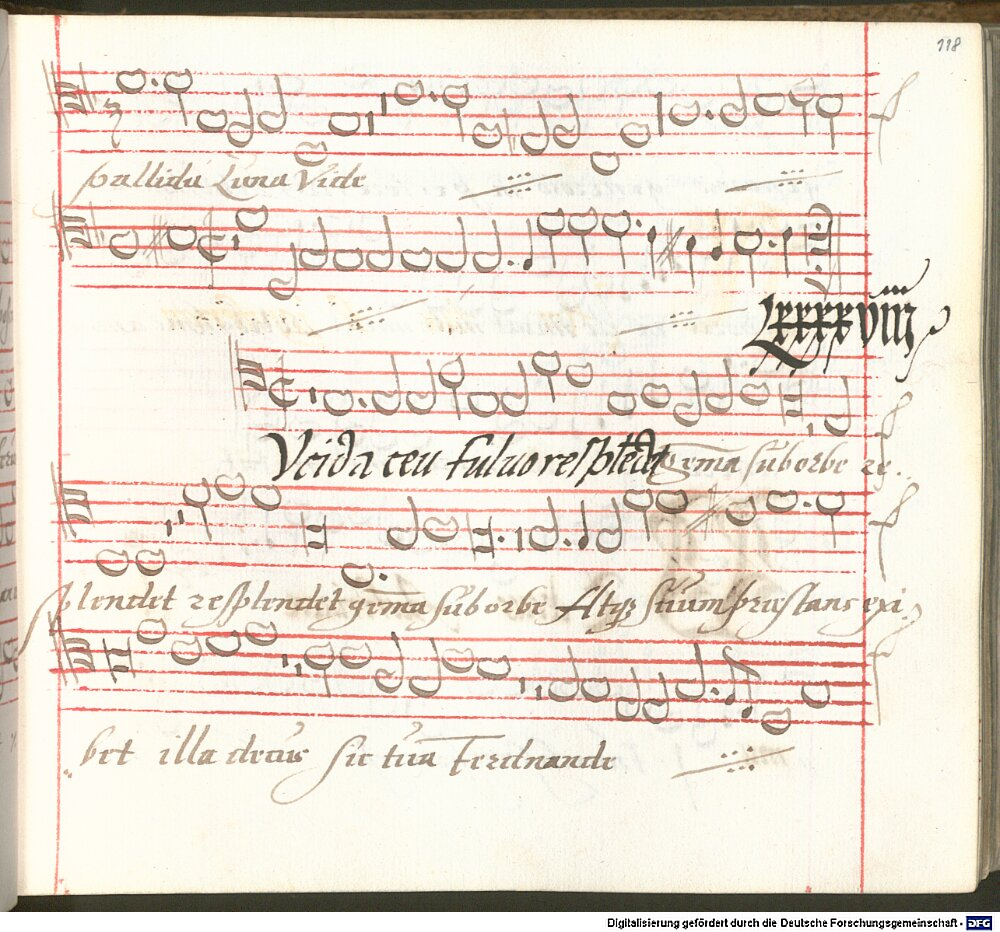 118
pallida Luna Vide
LXXXXVIII
Vcida ceu fuluo resplēdet gēma sub orbe re
splendet resplendet gēma sub orbe Atqȝ suum prestans exi
bet illa decus sic tua Ferdnande
Digitalisierung gefördert durch die Deutsche Forschungsgemeinschaft - DFG